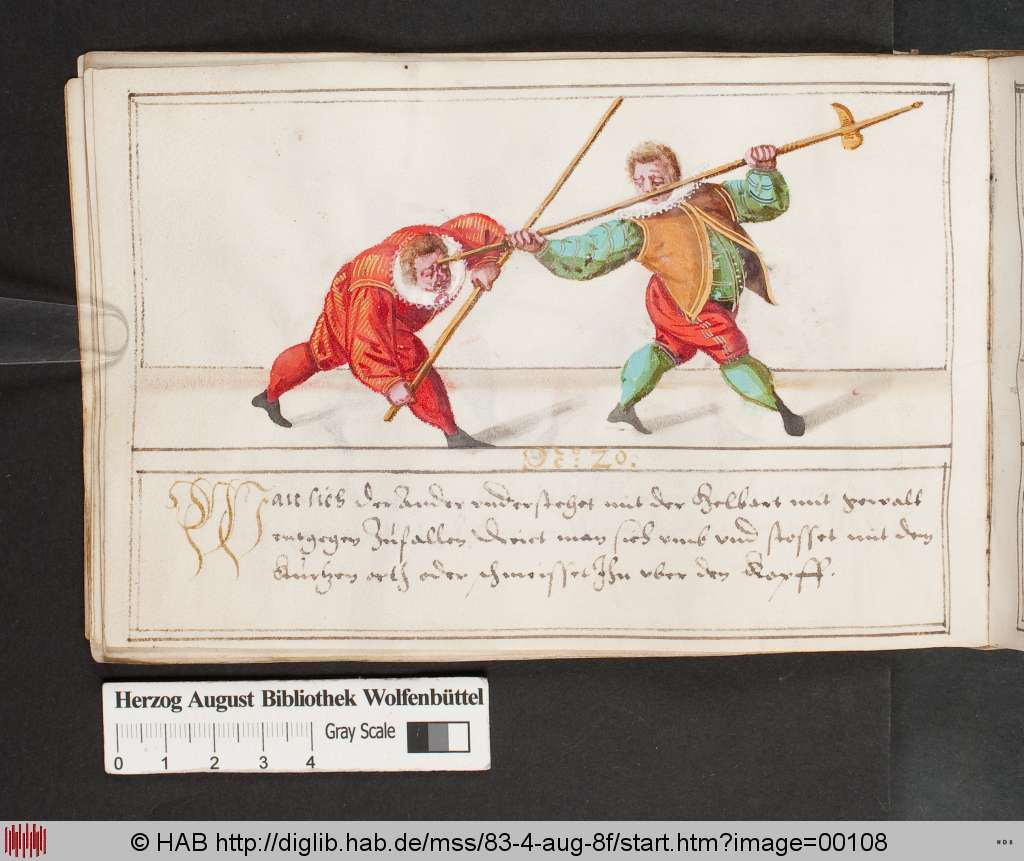 N<sup>ro</sup>: 20.
Wan sich der Ander understehet mit der Helbart mit gewalt
entgegen Zufallen, dreiet man sich umb und stosset mit dem
kurtzen orth oder schmeisset Ihn uber den Kopff.
Herzog August Bibliothek Wolfenbüttel
Gray Scale
0 1 2 3 4
© HAB http://diglib.hab.de/mss/83-4-aug-8f/start.htm?image=00108